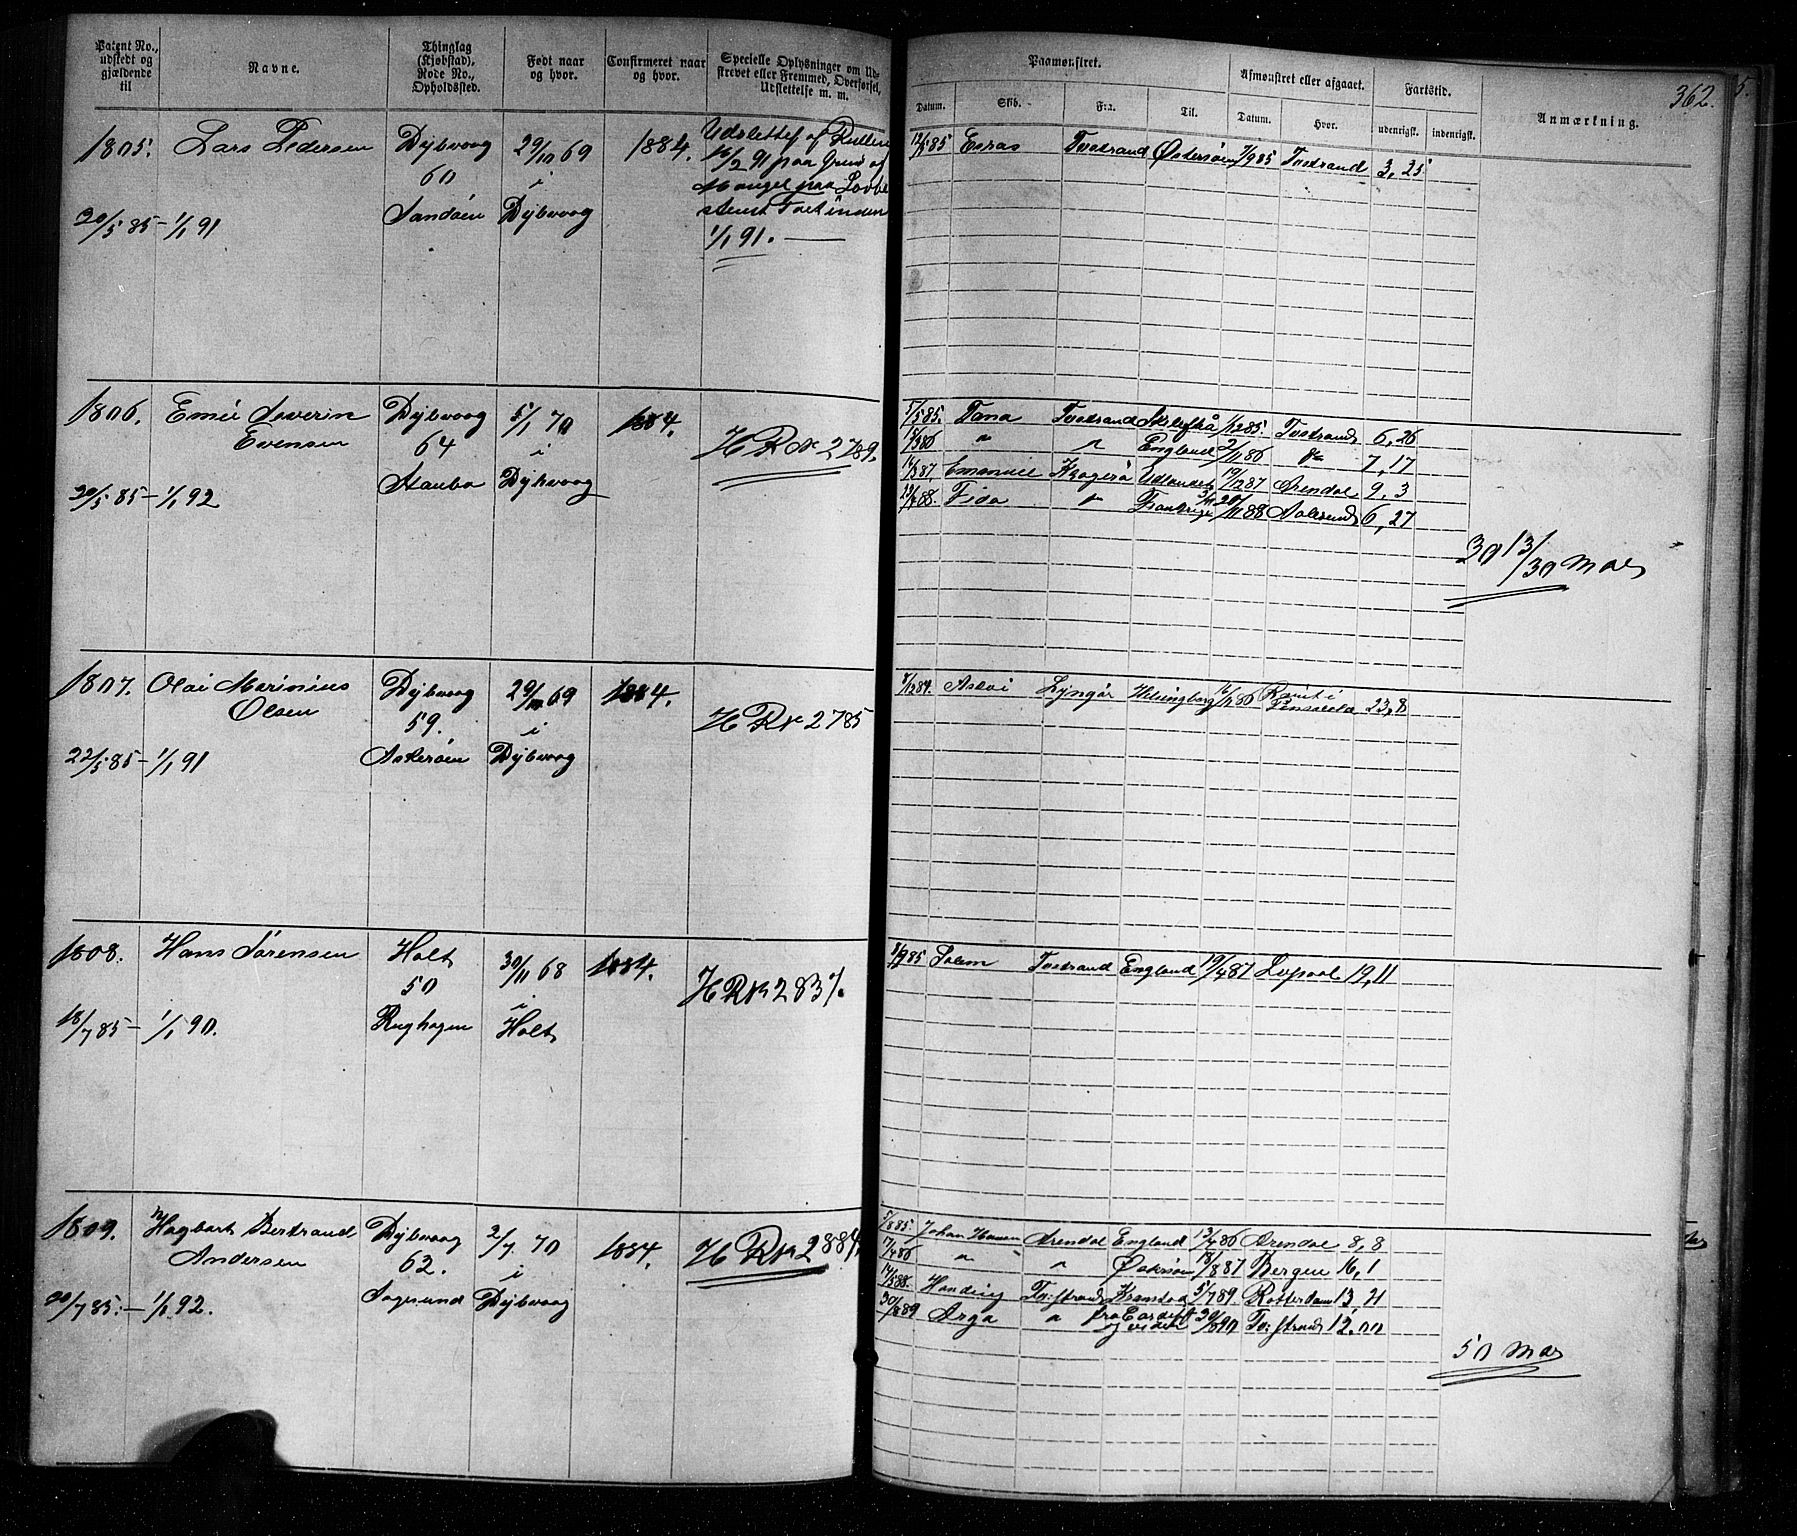 Patent No., udstedt og gjældende til
Navne.
Thinglag (Kjøbstad), Rode No., Opholdssted.
Født naar og hvor.
Confirmeret naar og hvor.
Specielle Oplysninger om Udskrevet eller Fremmed, Overførsel, Udslettelse m. m.
Paamønstret.
Afmønstret eller afgaaet.
Fartstid.
Anmærkning.
362.
5.
Datum. Skib. Fra. Til. Datum. Hvor. udenrigsk. indenrigsk.
1805. Lars Pedersen Dybvaag 29/10 69 1884. Udslettet af Rullen
60 i 16/2 91 paa Grund af
Mangel paa Lovbe
20/5 85 - 1/1 91 Sandøen Dybvaag stemt Fart inden
1/1 91.
12/5 85 Esras Tvestrand Østersøen 7/9 85 Tvestrand 3,25
1806. Emil Severin Dybvaag 5/1 70 1884.
Evensen 64 i H R № 2789.
20/5 85 - 1/1 92 Staubø Dybvaag
5/5 85. Tana Tvestrand Skelefteå 1/12 85. Tvestrand 6,26
" " England 2/11 86 7,17
Emanuel Kragerø Udlandet 19/12 87 Arendal 9,3
Fido " Frankrige 20/11 88 Aalesund 6,27
30 13/30 Mdr
1807. Olai Marinius Dybvaag 29/11 69 1884.
Olsen 59. i H R № 2785
22/5 85 - 1/1 91 Askerøen Dybvaag
8/12 84. Aslvi Lyngør Helsingborg 16/12 86 Rømt i
Pensacola 23,8
1808. Hans Sørensen Holt 30/11 68 1884.
50 i H R № 2837.
18/7 85 - 1/1 90. Rughagen Holt
8/9 85 Salem Tvestrand England 19/4 87 Lvpool 19,11
1809. Hagbart Bertrand Dybvaag 2/7 70 1884. H R № 2884.
Andersen 62. i
20/7 85. - 1/1 92. Sagesund Dybvaag
5/8 85. Johan Hansen Arendal England 13/4 86 Arendal 8,8
17/4 86 " " Østersøen 18/8 87 Bergen 16,1
14/5 88. Handig Tvestrand Kronstad 5/7 89. Rotterdam 13,21
30/8 89 Arga " fra Cardiff 30/8 90 Tvestrand 12,00
og videre
50 Mdr